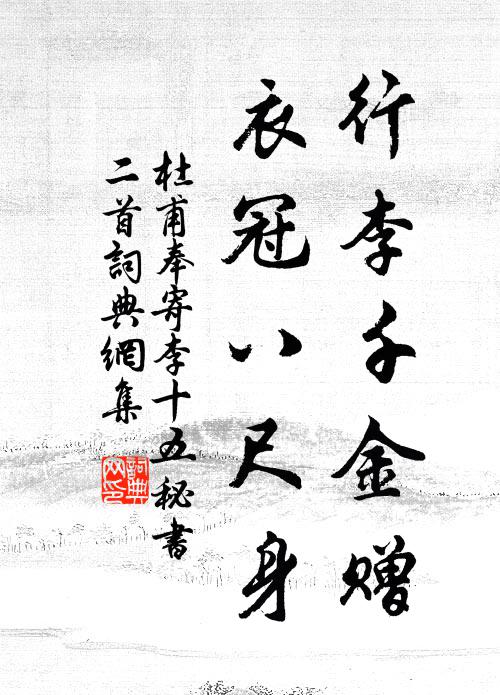 行李千金赠
衣冠八尺身
杜甫奉寄李十五秘書
二首詞典網集
詞典
网印